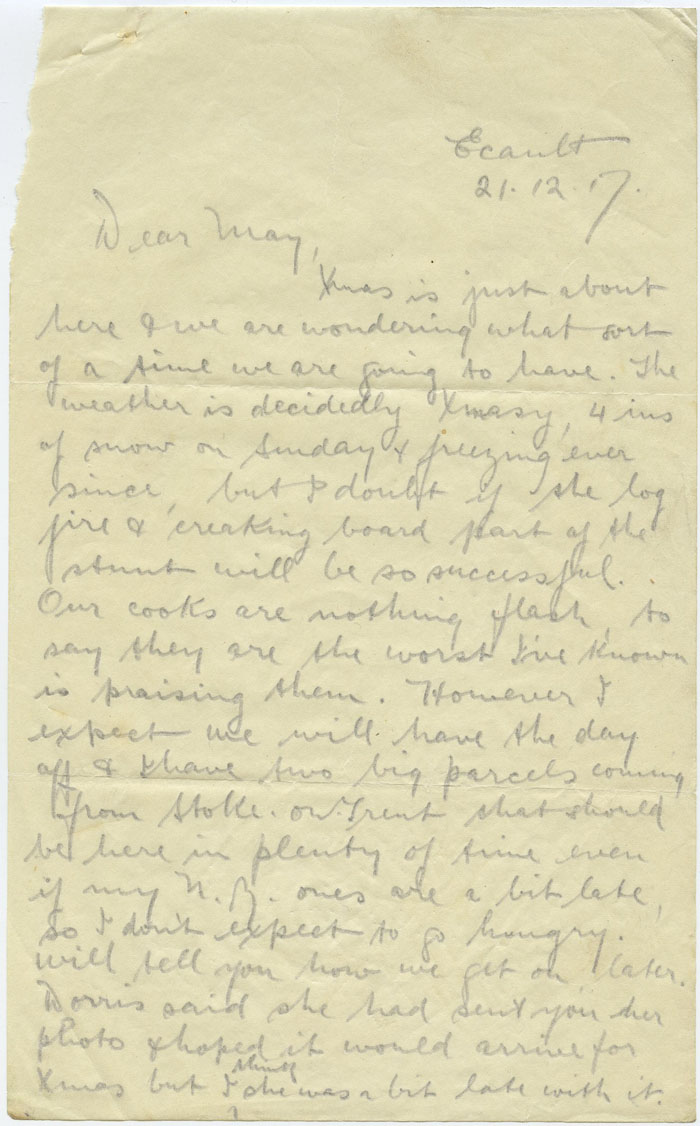 Ecault
21.12.17.
Dear May,
Xmas is just about
here & we are wondering what sort
of a time we are going to have. The
weather is decidedly Xmasy, 4 ins
of snow on Sunday & freezing ever
since, but I doubt if the log
fire & creaking board part of the
stunt will be so successful.
Our cooks are nothing flash, to
say they are the worst I've known
is praising them. However I
expect we will have the day
off & I have two big parcels coming
from Stoke-on-Trent that should
be here in plenty of time even
if my N.Z. ones are a bit late,
so I don't expect to go hungry.
will tell you how we get on later.
Dorris said she had sent you her
photo & hoped it would arrive for
Xmas but I think she was a bit late with it.